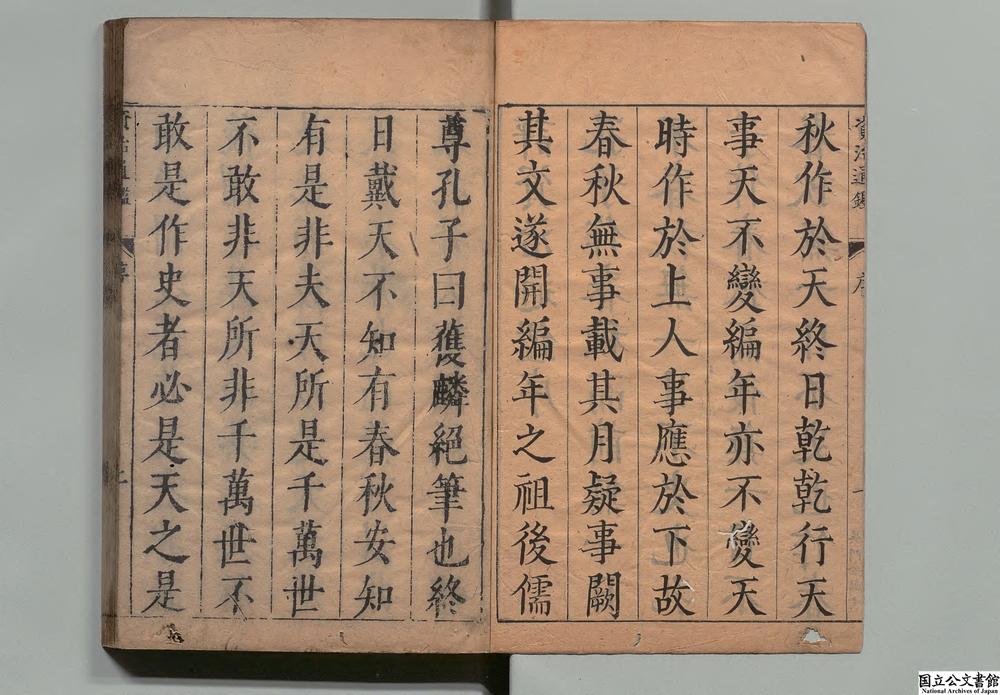 資治通鑑
序
一
秋作於天終日乾乾行天
事天不變編年亦不變天
時作於上人事應於下故
春秋無事載其月疑事闕
其文遂開編年之祖後儒
尊孔子曰獲麟絕筆也終
日戴天不知有春秋安知
有是非夫天所是千萬世
不敢非天所非千萬世不
敢是作史者必是天之是
資治通鑑
序
国立公文書館
National Archives of Japan